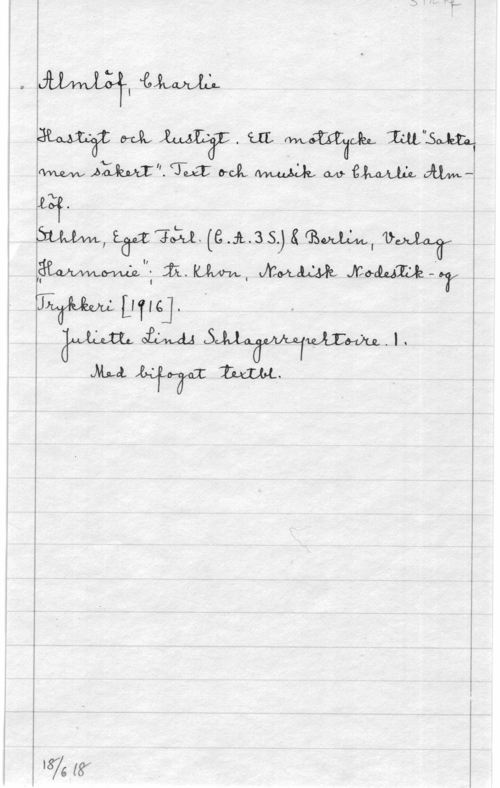 Almlöf, Charlie
Hastigt och lustigt. Ett motstycke till "Sakta,
men säkert". Text och musik av Charlie Alm-
löf.
Sthlm, Eget Förl. (C.A.3S.) & Berlin, Verlag
"Harmonie"; tr. Khvn, Nordisk Nodestik-og
Trykkeri [1916].
Juliette Linds Schlagerrepertoire. 1.
Med bifogat textbl.
18/6 18